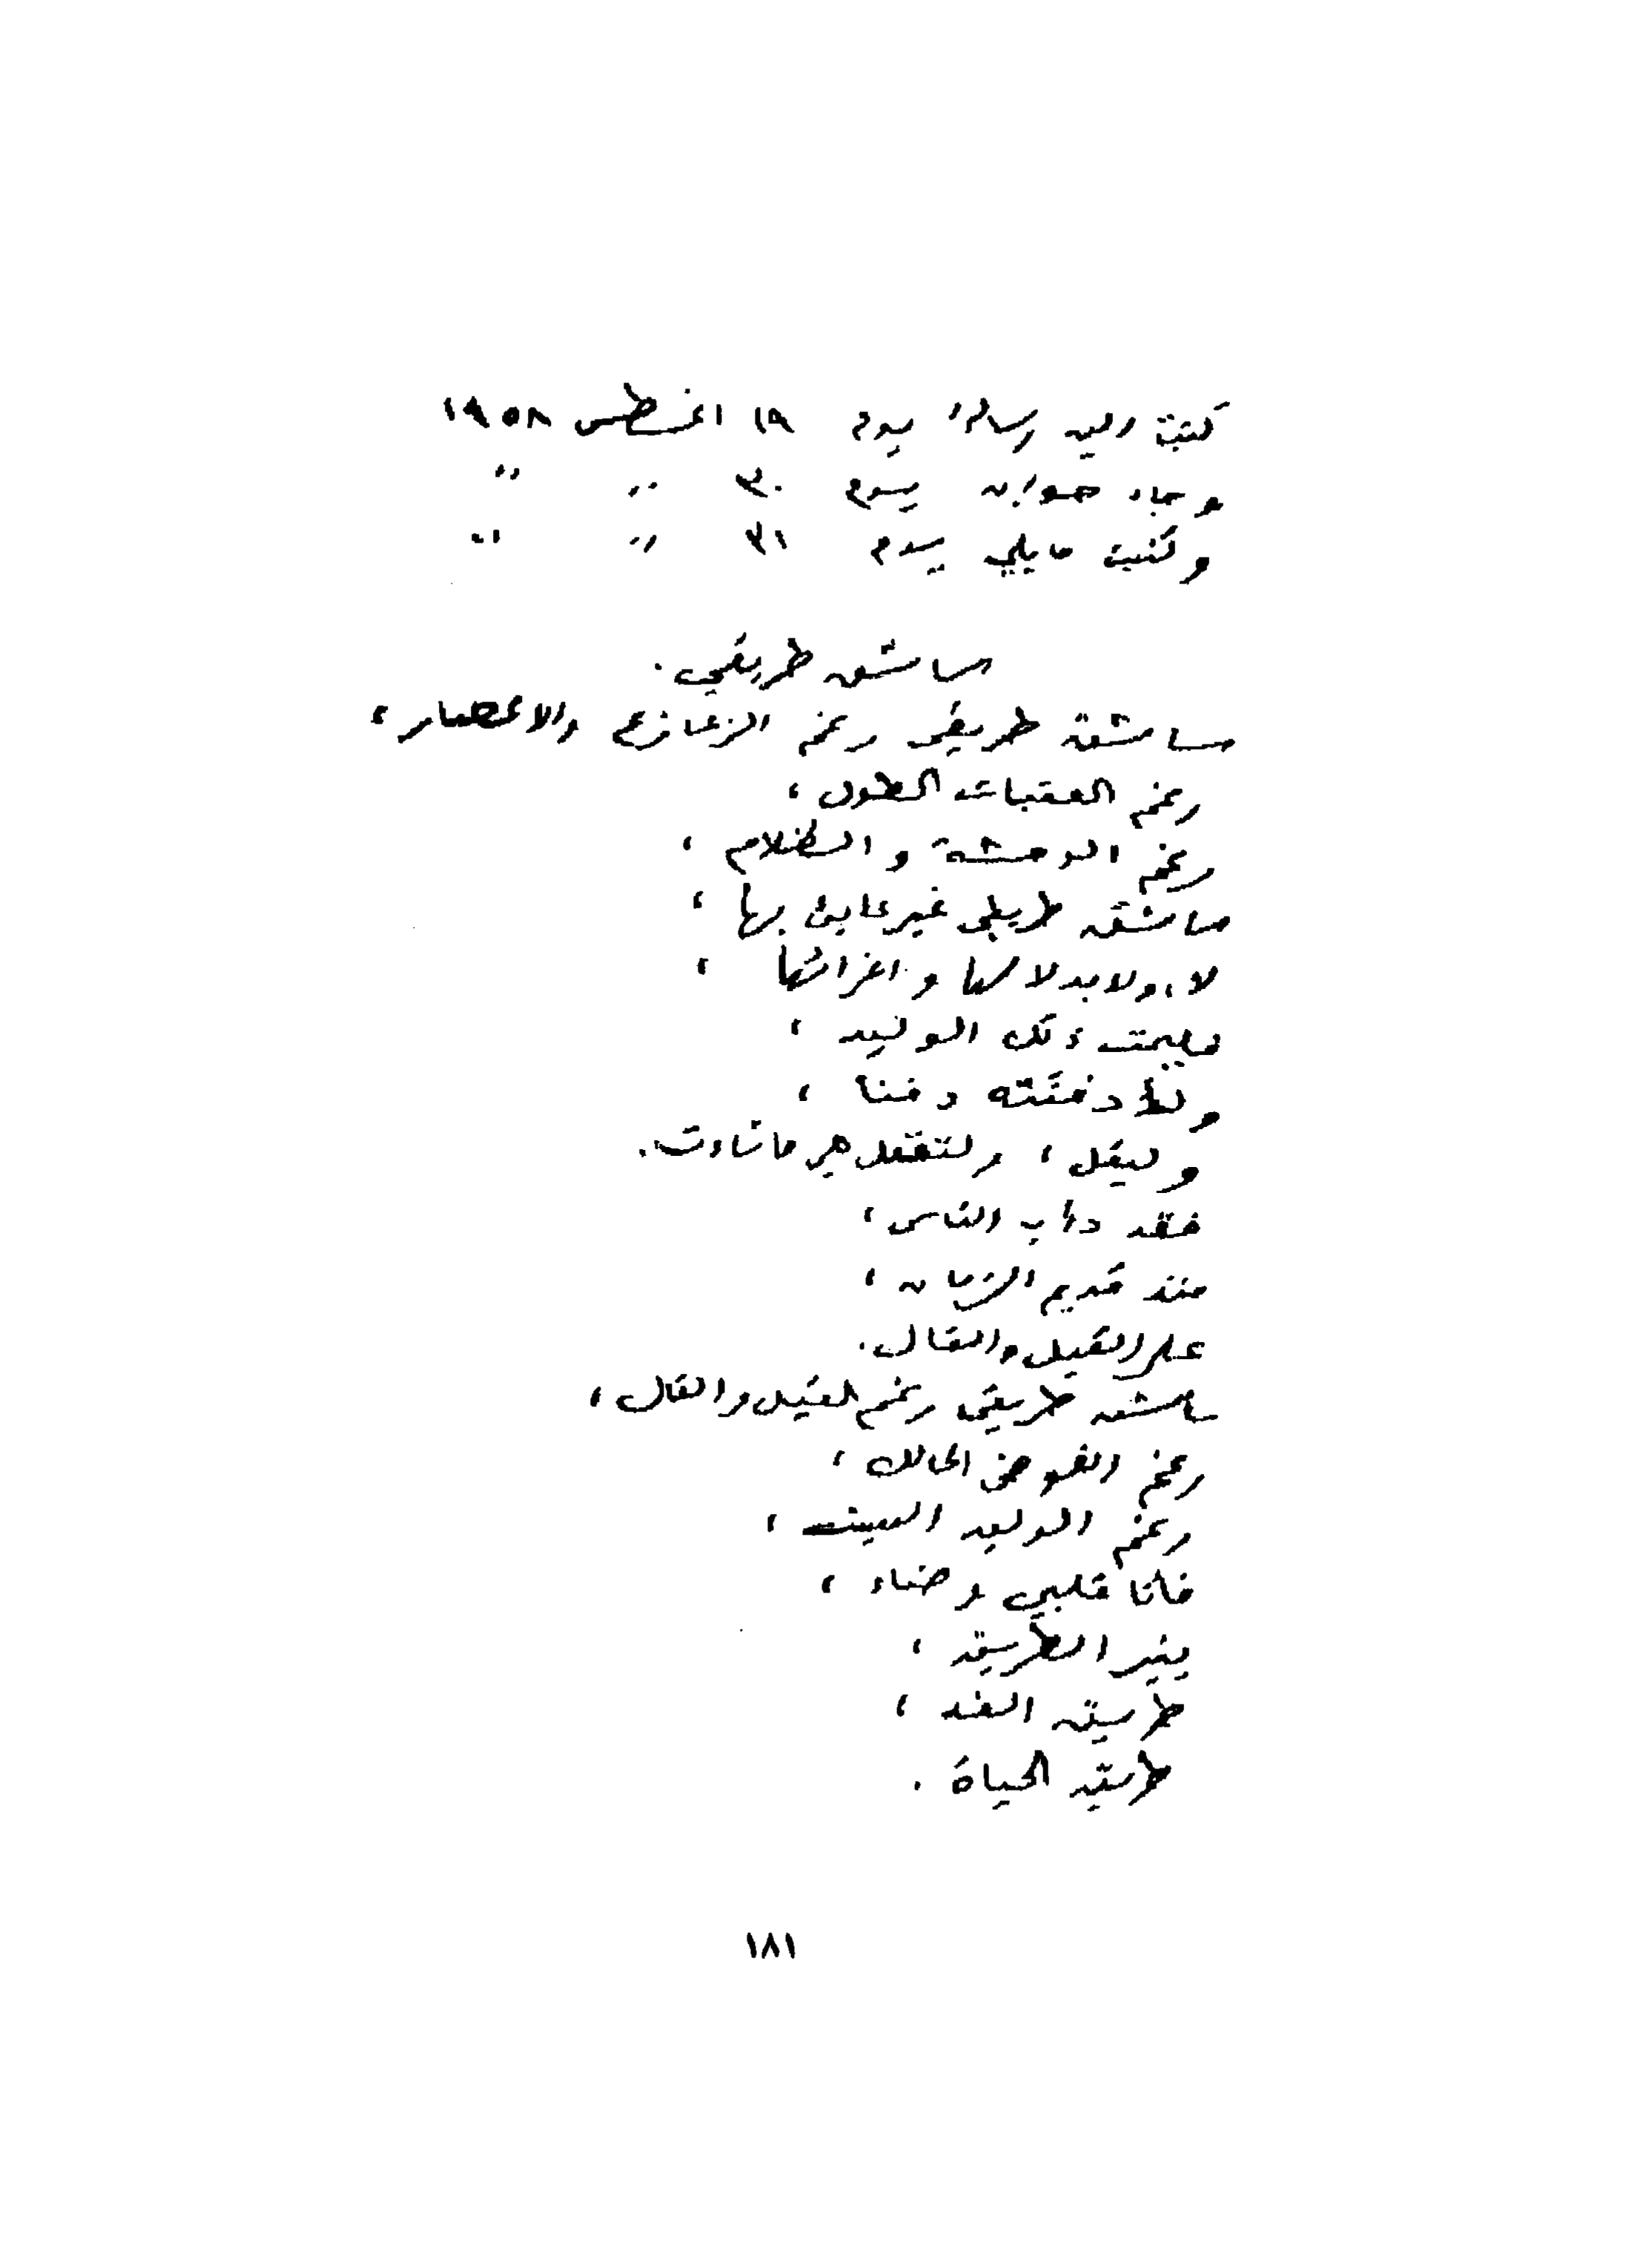 كتبت اليه رسالة يوم ١٩ اغسطس ١٩٥٨
وجاء جوابه يوم ٣٠ " "
وكتبت مايلي يوم ٣١ " "
سأشق طريقي.
سأشق طريقي رغم الزعازع والاعصار،
رغم العقبات الطول،
رغم الوحشة والظلام،
سأشق طريقي غير عابئ بها،
لا، ولا بدلالها واغرائها،
فليمت ذلك الوليد،
ولأدفنَنَّه دفنا،
وليقل، ولتقل هي ماشاءت.
فقد دأب الناس،
منذ قديم الزمان،
على القيل والقال.
سأشق طريقي رغم القيل والقال،
رغم الفوضى الحالك،
رغم الوليد الميت،
فأنا قلبي وضاء،
ينير الطريق،
طريق الغد،
طريق الحياة.
١٨١